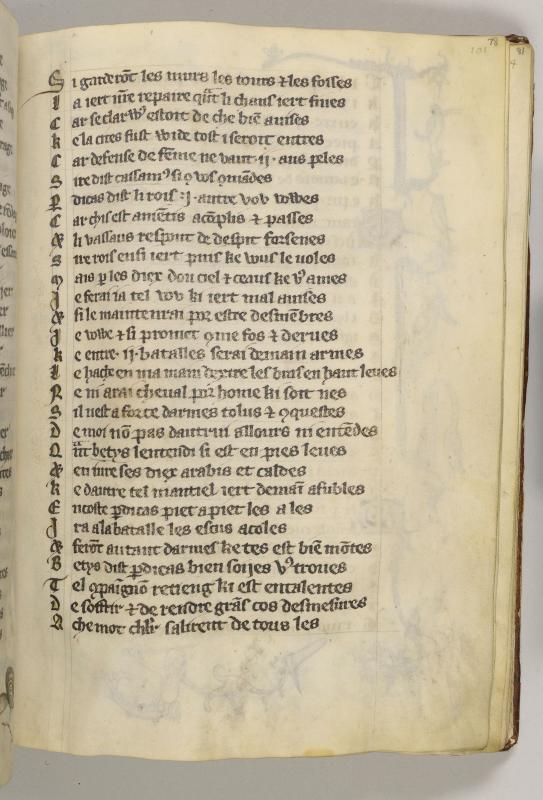 78
101
81
4
S i garderōt les murs les tours ⁊ les fosses
I a iert nr̄e repaire qn̄t li chaus iert fines
C ar se clarꝰ estoit de che biē auises
K e la cites fust wide tost i seroit entres
C ar defense de fēme ne vaut .ij. aus peles
S ire dist cassamꝰ si ꝯ vos ꝯmādes
P dicas dist li rois .j. autre vov vowes
C ar chis est amentis acōplis ⁊ passes
⁊ li vassaus respont de despit forsenes
S ire rois ensi iert puis ke vous le voles
M ais ꝑ les diex dou ciel ⁊ ceaus ke vꝰ ames
J e ferai ia tel vov ki iert mal auises
⁊ si le maintenrai por estre desmēbres
J e vowe ⁊ si promet ꝯme fos ⁊ derues
K e entre .ij. batalles serai demain armes
L e hache en ma main dextre les bras en haut leues
N e m arai cheual por home ki soit nes
S il nest a force darmes tolus ⁊ ꝯquestes
D e moi nō pas dautrui allours ni entēdes
Q ūt betys lentendi si est en pies leues
⁊ en iure ses diex arabis et caldes
K e dautre tel mantiel iert demaī afubles
E ncoste ꝑdicas piet a piet les a les
J ra a la batalle les escus acoles
⁊ ferōt autant darmes ke tes est biē mōtes
B etys dist ꝑdicas bien soijes vꝰ troues
T el ꝯpaīgnō retieng ki est entalentes
D e soffrir ⁊ de rendre grās cos desmesures
A che mot chlr̄ salirent de tous les